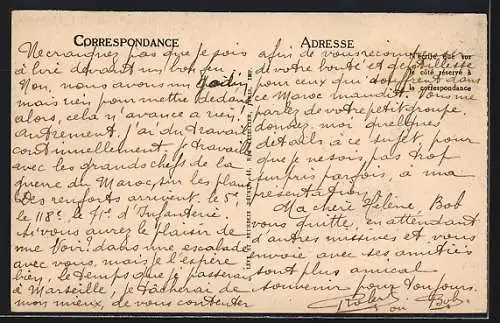 CORRESPONDANCE
Ne craignez pas que je sois
à lire devant un bon feu
Non, nous avons un Godin
mais rien pour mettre dedans
alors, cela n'avance a rien,
autrement. J'ai du travail
continuellement. Je travaille
avec les grands chefs de la
guerre du Maroc, sur les plans
Des renforts arrivent, le 5e
le 118e, le 71e d'Infanterie.
Si vous aurez le plaisir de
me voir? dans une escalade
avec vous, mais je l'espère
bien, le temps que je passerai
à Marseille, je tâcherai de
mon mieux, de vous contenter
ADRESSE
afin de vous récompenser
de votre bonté et gentillesse
pour ceux qui souffrent dans
ce Maroc maudit. Vous me
parlez de votre petit groupe
donnez moi quelques
détails à ce sujet, pour
que je ne sois pas trop
surpris parfois, a ma
présentation.
Ma chère Hélène, Bob
vous quitte, en attendant
d'autres missives et vous
envoie avec ses amitiés
sont plus amical
souvenir pour toujours.
Robert ou Bob.
le côté réservé à
la correspondance